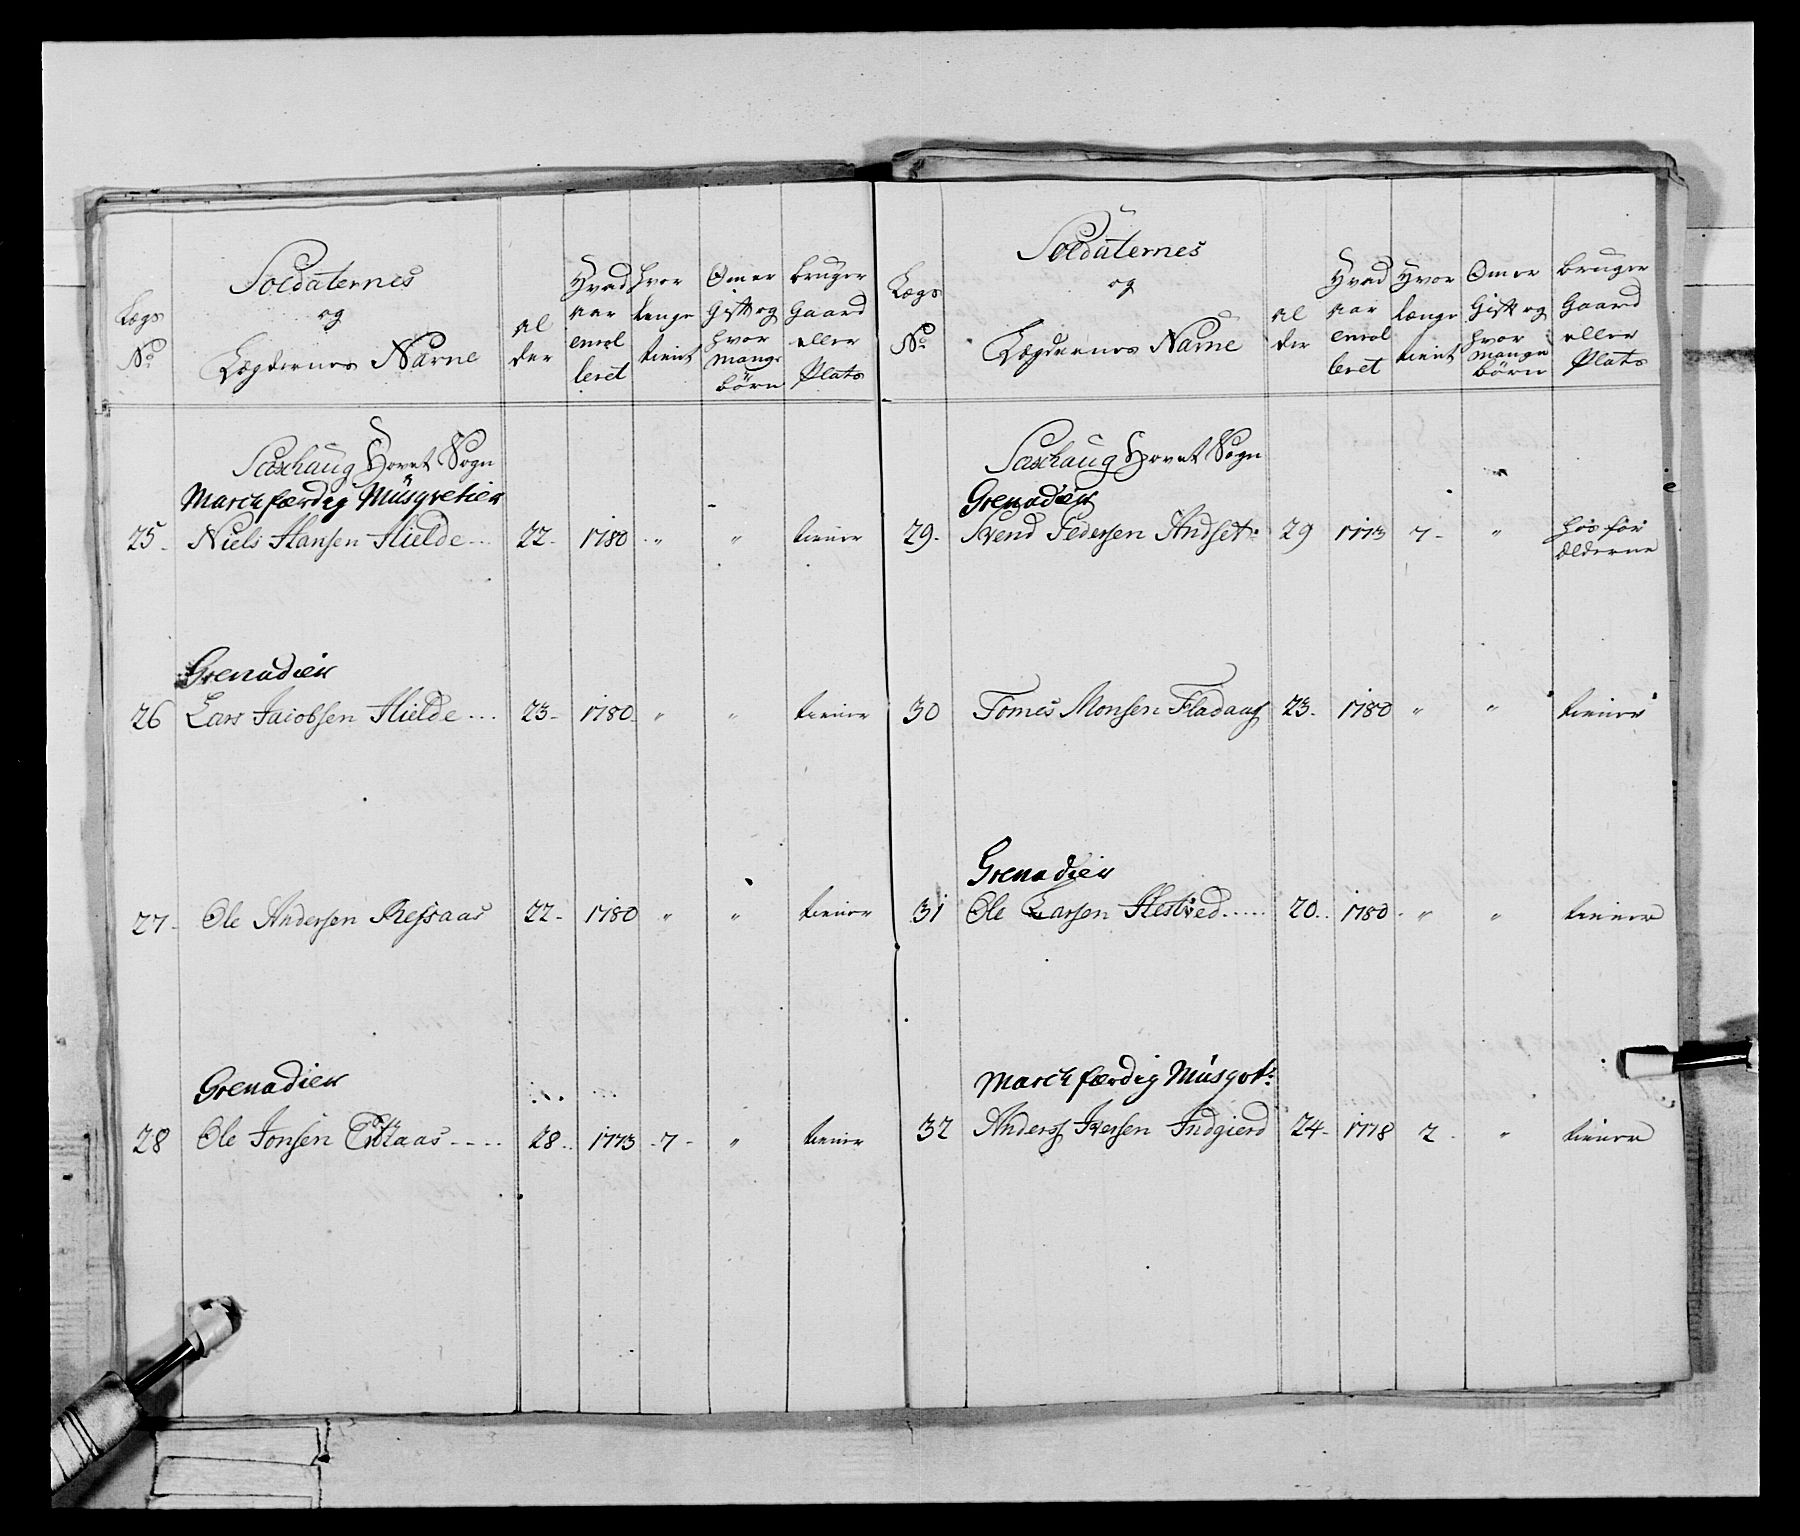 Lægs
No
Soldaternes
og
Lægdernes Nafne
Al
der
Hvad
aar
enrol
leret
Hvor
længe
tient
Om er
Gift og
hvor
mange
børn
bruger
Gaard
eller
Plats
Saxhaug Hovet Sogn
Marchfærdig Müsqvetier
25. Niels Hansen Hielde... 22. 1780. " " tiener
Grenadier
26 Lars Jacobsen Hielde... 23. 1780. " " tiener
27. Ole Andersen Ressaas 22. 1780 " " tiener
Grenadier
28 Ole Jonsen .... 28.. 1773 .7. " tiener
Lægs
No
Soldaternes
og
Lægdernes Nafne
Al
der
Hvad
aar
enrol
leret
Hvor
længe
tient
Om er
Gift og
hvor
mange
børn
bruger
Gaard
eller
Plats
Saxhaug Hovet Sogn
Grenadier
29. Svend Pedersen Andset: 29 1773 7. " hos for
Ælderne
30 Tomes Monsen Fladaas 23. 1780 " " tiener
Grenadier
31 Ole Larsen Hestved..... 20.. 1780. " " tiener
Marchfærdig Müsqvt:
32 Anders Iversen Indgierd 24. 1778 2. " tiener